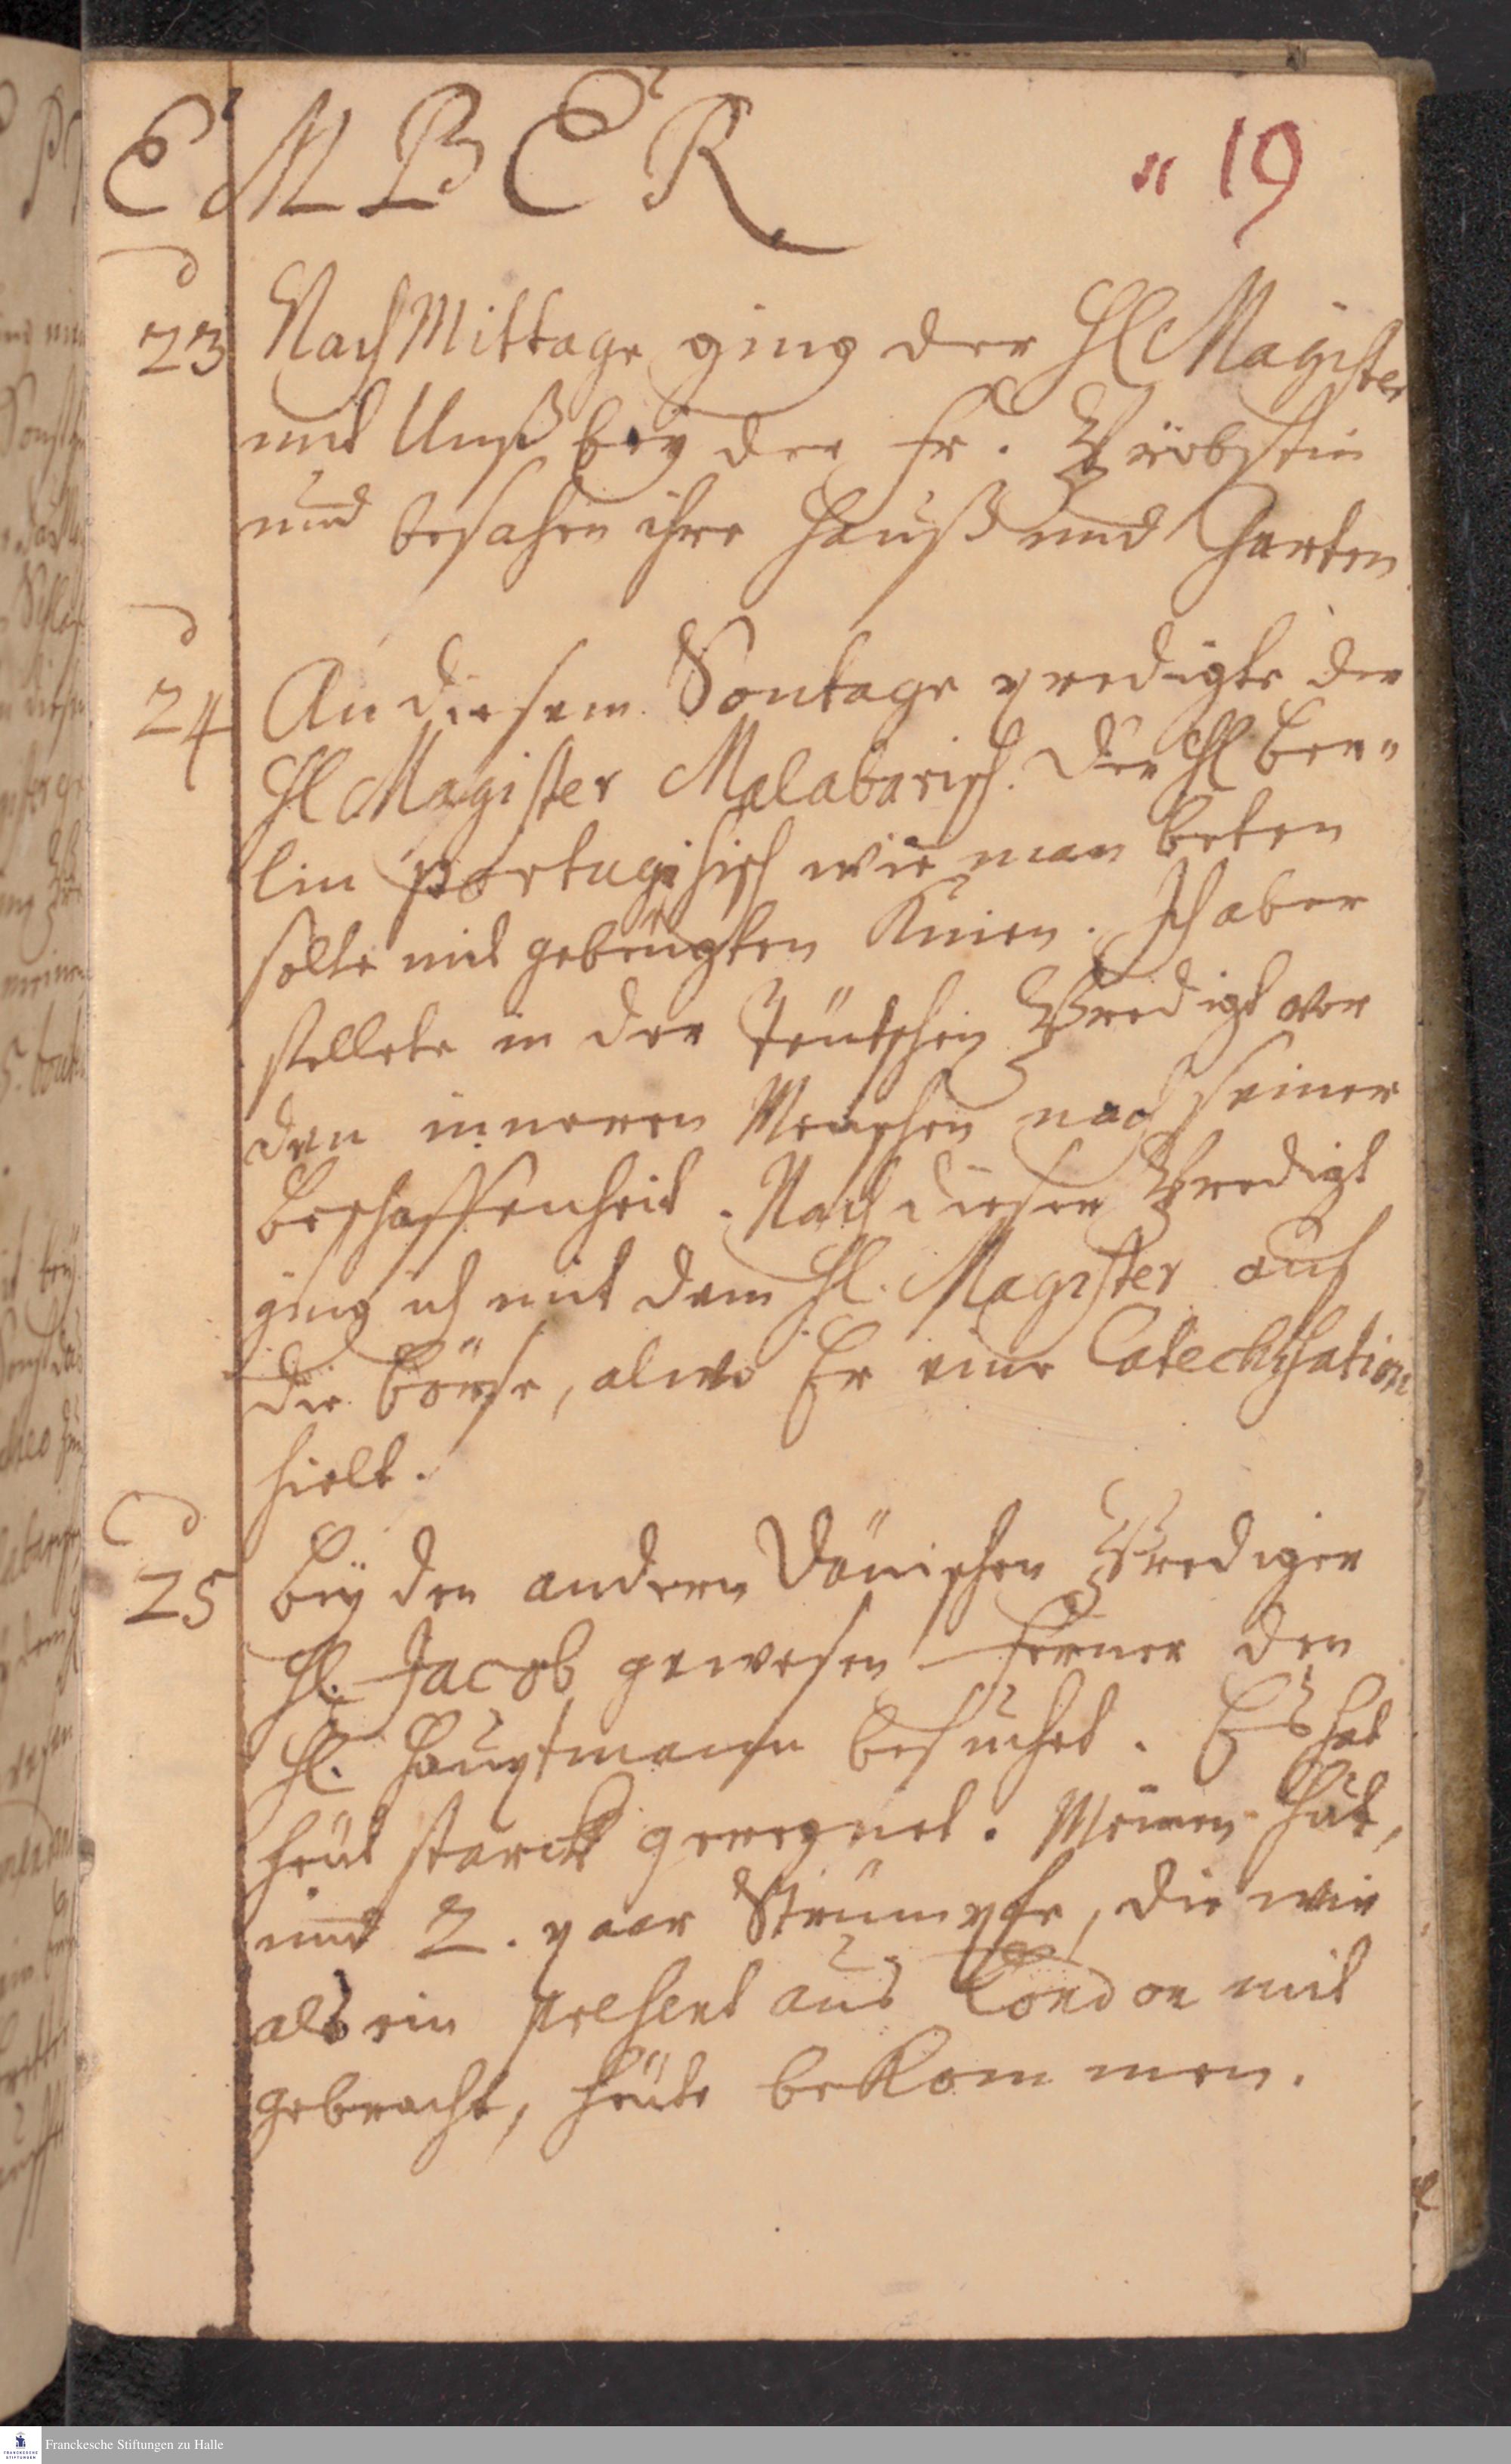 EMBER
" 19
d
23 NachMittage ging der Hl Magister
mit Unß bey der Fr. Pröbstin
und besahen ihre Hauß und Garten
d
24 An diesem Sontage predigte der
Hl Magister Malabarisch. Der Hl Ber„
lin portugisisch wie man beten
solte mit gebeugten Knien. Ich aber
stellete in der Teutschen Predigt vor
den inneren Menschen nach seiner
Beschaffenheit. Nach dieser Predigt
ging ich mit dem Hl. Magister auf
die Börse, alwo Er eine Catechisation
hielt.
d
25 Bey den andern Dänischen Prediger
Hl. Jacob gewesen ferner den
Hl. Hauptmann besuchet. Es hat
heut starck geregnet. Meinen Hut,
und 2. paar Strümpfe, die wir
als ein present aus London mit
gebracht, heute bekommen.
Franckesche Stiftungen zu Halle
FRANCKESCHE
STIFTUNGEN